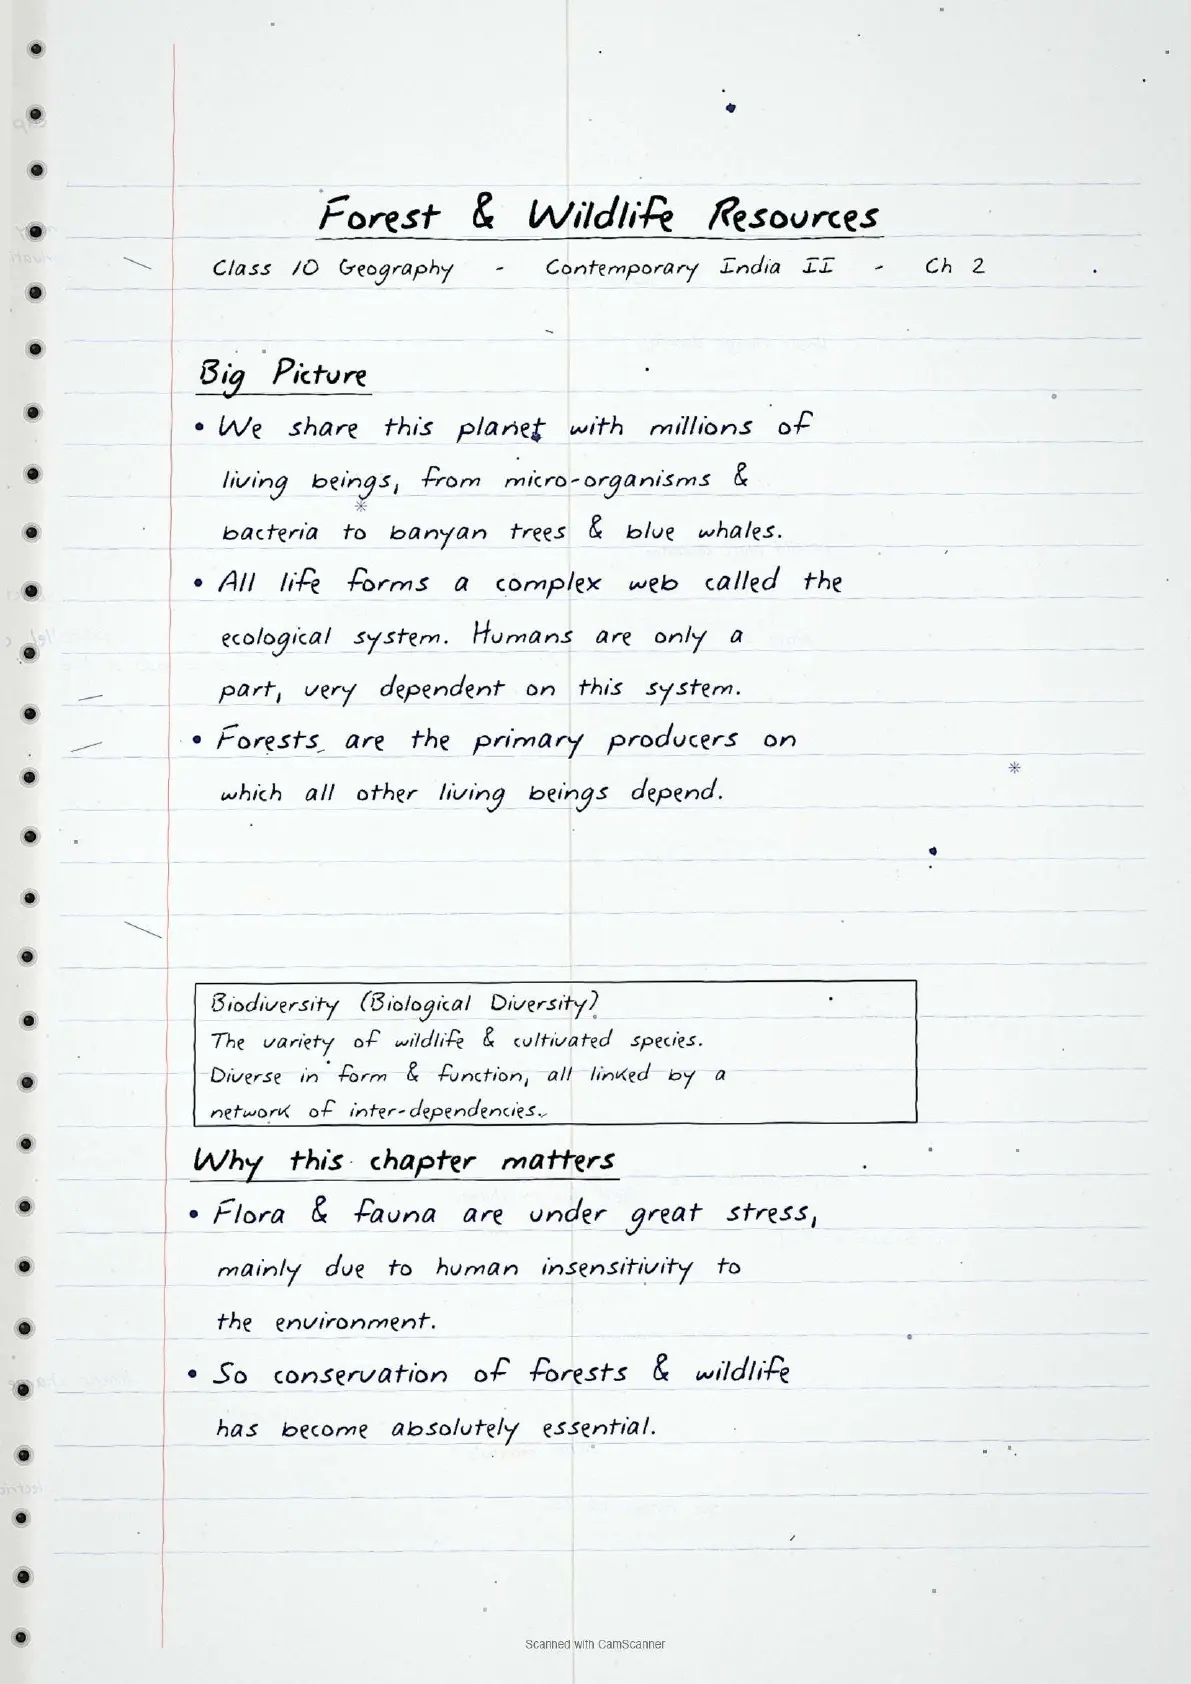 Forest & Wildlife Resources
Class 10 Geography - Contemporary India II - Ch 2
Big Picture
• We share this planet with millions of
living beings, from micro-organisms &
bacteria to banyan trees & blue whales.
• All life forms a complex web called the
ecological system. Humans are only a
part, very dependent on this system.
• Forests are the primary producers on
which all other living beings depend.
Biodiversity (Biological Diversity)
The variety of wildlife & cultivated species.
Diverse in form & function, all linked by a
network of inter-dependencies.
Why this chapter matters
• Flora & fauna are under great stress,
mainly due to human insensitivity to
the environment.
• So conservation of forests & wildlife
has become absolutely essential.
Scanned with CamScanner